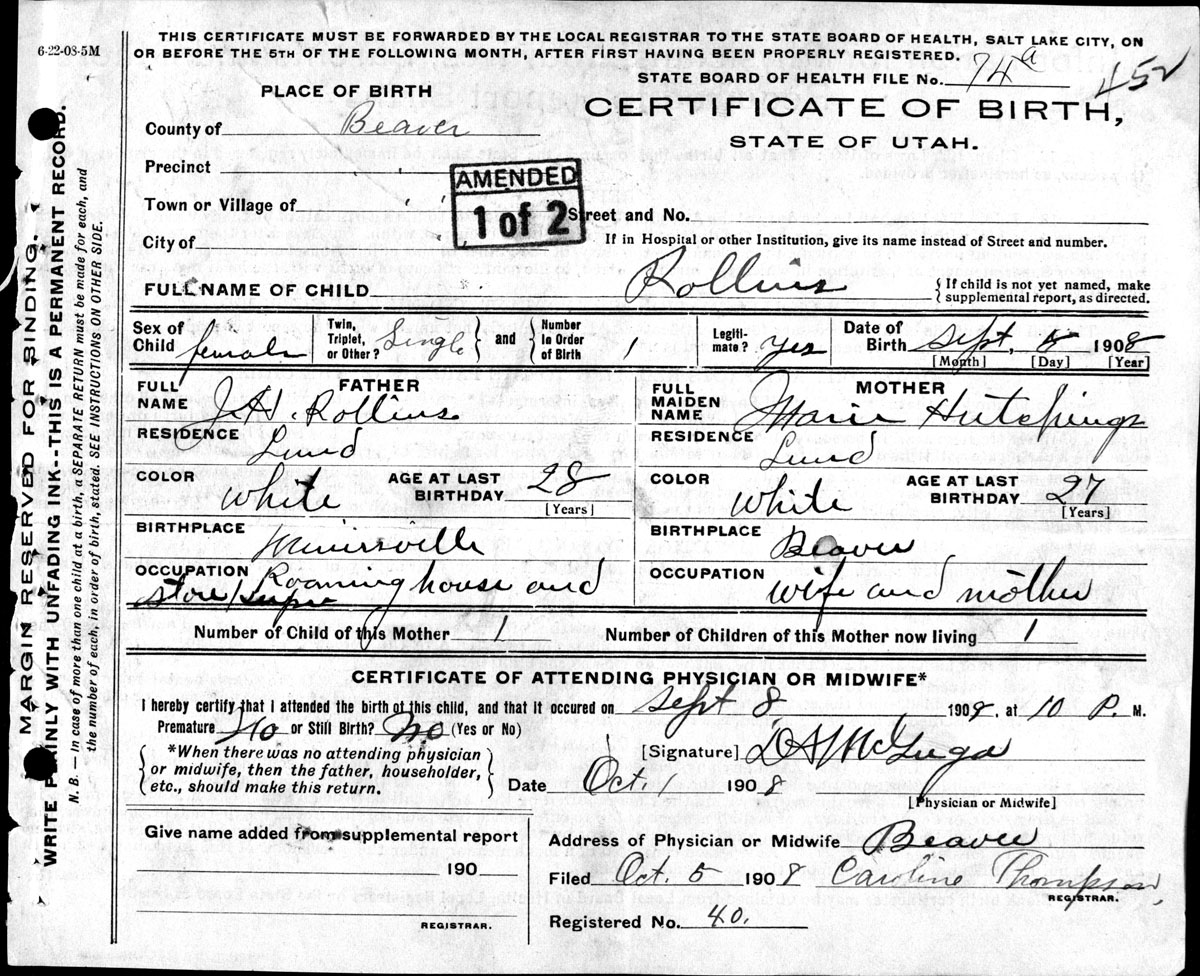 6-22-08-5M
THIS CERTIFICATE MUST BE FORWARDED BY THE LOCAL REGISTRAR TO THE STATE BOARD OF HEALTH, SALT LAKE CITY, ON
OR BEFORE THE 5TH OF THE FOLLOWING MONTH, AFTER FIRST HAVING BEEN PROPERLY REGISTERED.
STATE BOARD OF HEALTH FILE No. 74a 452
PLACE OF BIRTH
CERTIFICATE OF BIRTH,
STATE OF UTAH.
County of Beaver
Precinct " "
AMENDED
1 of 2
Town or Village of " " Street and No.
City of If in Hospital or other Institution, give its name instead of Street and number.
FULL NAME OF CHILD Rollins { If child is not yet named, make
supplemental report, as directed.
Sex of Child female Twin, Triplet, or Other? Single } and { Number in Order of Birth 1 Legiti-mate? yes Date of Birth Sept. 8 1908
[Month] [Day] [Year]
FATHER MOTHER
FULL NAME J.H. Rollins FULL MAIDEN NAME Marie Hutchings
RESIDENCE Lund RESIDENCE Lund
COLOR White AGE AT LAST BIRTHDAY 28 [Years] COLOR White AGE AT LAST BIRTHDAY 27 [Years]
BIRTHPLACE Minersville BIRTHPLACE Beaver
OCCUPATION Roaming house and store OCCUPATION wife and mother
Number of Child of this Mother 1 Number of Children of this Mother now living 1
CERTIFICATE OF ATTENDING PHYSICIAN OR MIDWIFE*
I hereby certify that I attended the birth of this child, and that it occured on Sept 8 1908, at 10 P. M.
Premature No or Still Birth? No (Yes or No)
{ *When there was no attending physician
or midwife, then the father, householder,
etc., should make this return. }
[Signature]
Date Oct. 1 1908 [Physician or Midwife]
Give name added from supplemental report
190
REGISTRAR.
Address of Physician or Midwife Beaver
Filed Oct. 5 1908 Caroline Thompson,
REGISTRAR.
Registered No. 40.
MARGIN RESERVED FOR BINDING
WRITE PLAINLY WITH UNFADING INK--THIS IS A PERMANENT RECORD.
N. B. — In case of more than one child at a birth, a SEPARATE RETURN must be made for each, and
the number of each, in order of birth, stated. SEE INSTRUCTIONS ON OTHER SIDE.